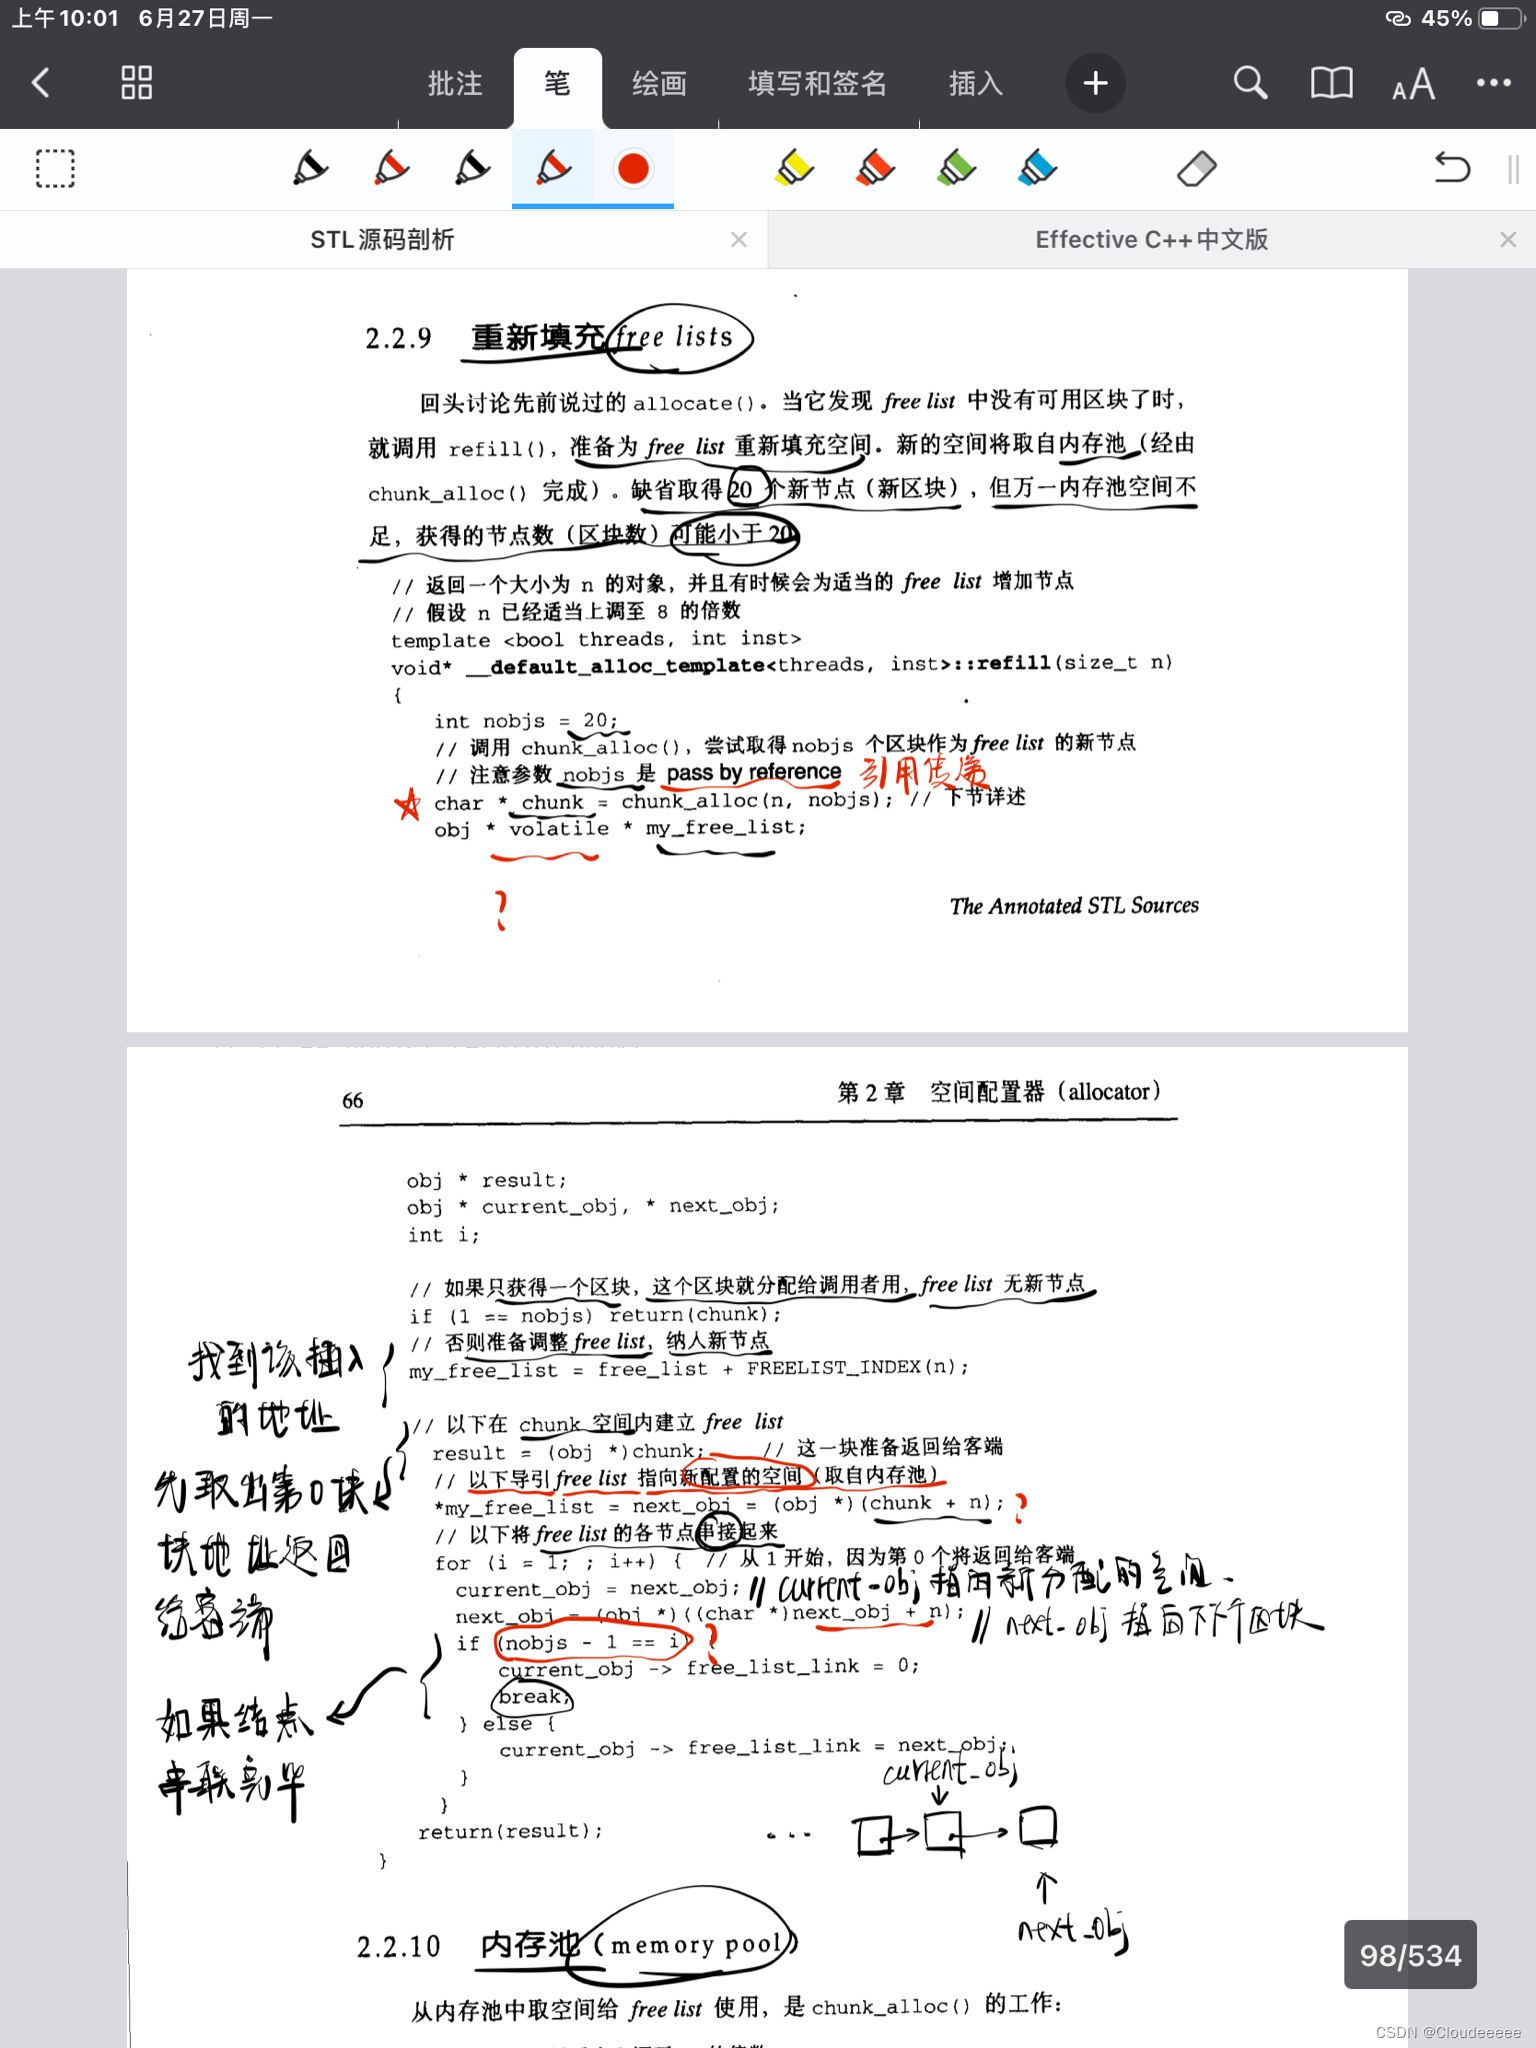 上午10:01 6月27日周一 45%
批注 笔 绘画 填写和签名 插入
STL源码剖析 Effective C++中文版
2.2.9 重新填充 free lists
回头讨论先前说过的 allocate()。当它发现 free list 中没有可用区块了时，
就调用 refill()，准备为 free list 重新填充空间。新的空间将取自内存池（经由
chunk_alloc() 完成）。缺省取得 20 个新节点（新区块），但万一内存池空间不
足，获得的节点数（区块数）可能小于 20
// 返回一个大小为 n 的对象，并且有时候会为适当的 free list 增加节点
// 假设 n 已经适当上调至 8 的倍数
template <bool threads, int inst>
void* __default_alloc_template<threads, inst>::refill(size_t n)
{
int nobjs = 20;
// 调用 chunk_alloc()，尝试取得 nobjs 个区块作为 free list 的新节点
// 注意参数 nobjs 是 pass by reference 引用传递
char * chunk = chunk_alloc(n, nobjs); // 下节详述
obj * volatile * my_free_list;
?
The Annotated STL Sources
66 第 2 章 空间配置器（allocator）
obj * result;
obj * current_obj, * next_obj;
int i;
// 如果只获得一个区块，这个区块就分配给调用者用，free list 无新节点
if (1 == nobjs) return(chunk);
// 否则准备调整 free list，纳入新节点
my_free_list = free_list + FREELIST_INDEX(n);
找到该插入
的地址
// 以下在 chunk 空间内建立 free list
result = (obj *)chunk; // 这一块准备返回给客端
// 以下导引 free list 指向新配置的空间（取自内存池）
*my_free_list = next_obj = (obj *)(chunk + n); ?
// 以下将 free list 的各节点串接起来
for (i = 1; ; i++) { // 从 1 开始，因为第 0 个将返回给客端
current_obj = next_obj; // current_obj 指向新分配的空间.
next_obj = (obj *)((char *)next_obj + n); // next_obj 指向下下个区块
if (nobjs - 1 == i) { ?
current_obj -> free_list_link = 0;
break;
} else {
current_obj -> free_list_link = next_obj;
}
}
return(result);
}
先取出第0块
块地址返回
给客端
如果结点
串联完毕
current_obj
...
next_obj
2.2.10 内存池（memory pool）
从内存池中取空间给 free list 使用，是 chunk_alloc() 的工作：
98/534
CSDN @Cloudeeeee